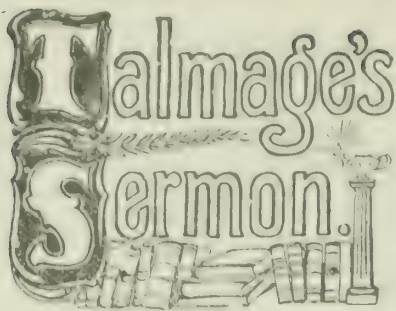 Talmage's
Sermon.